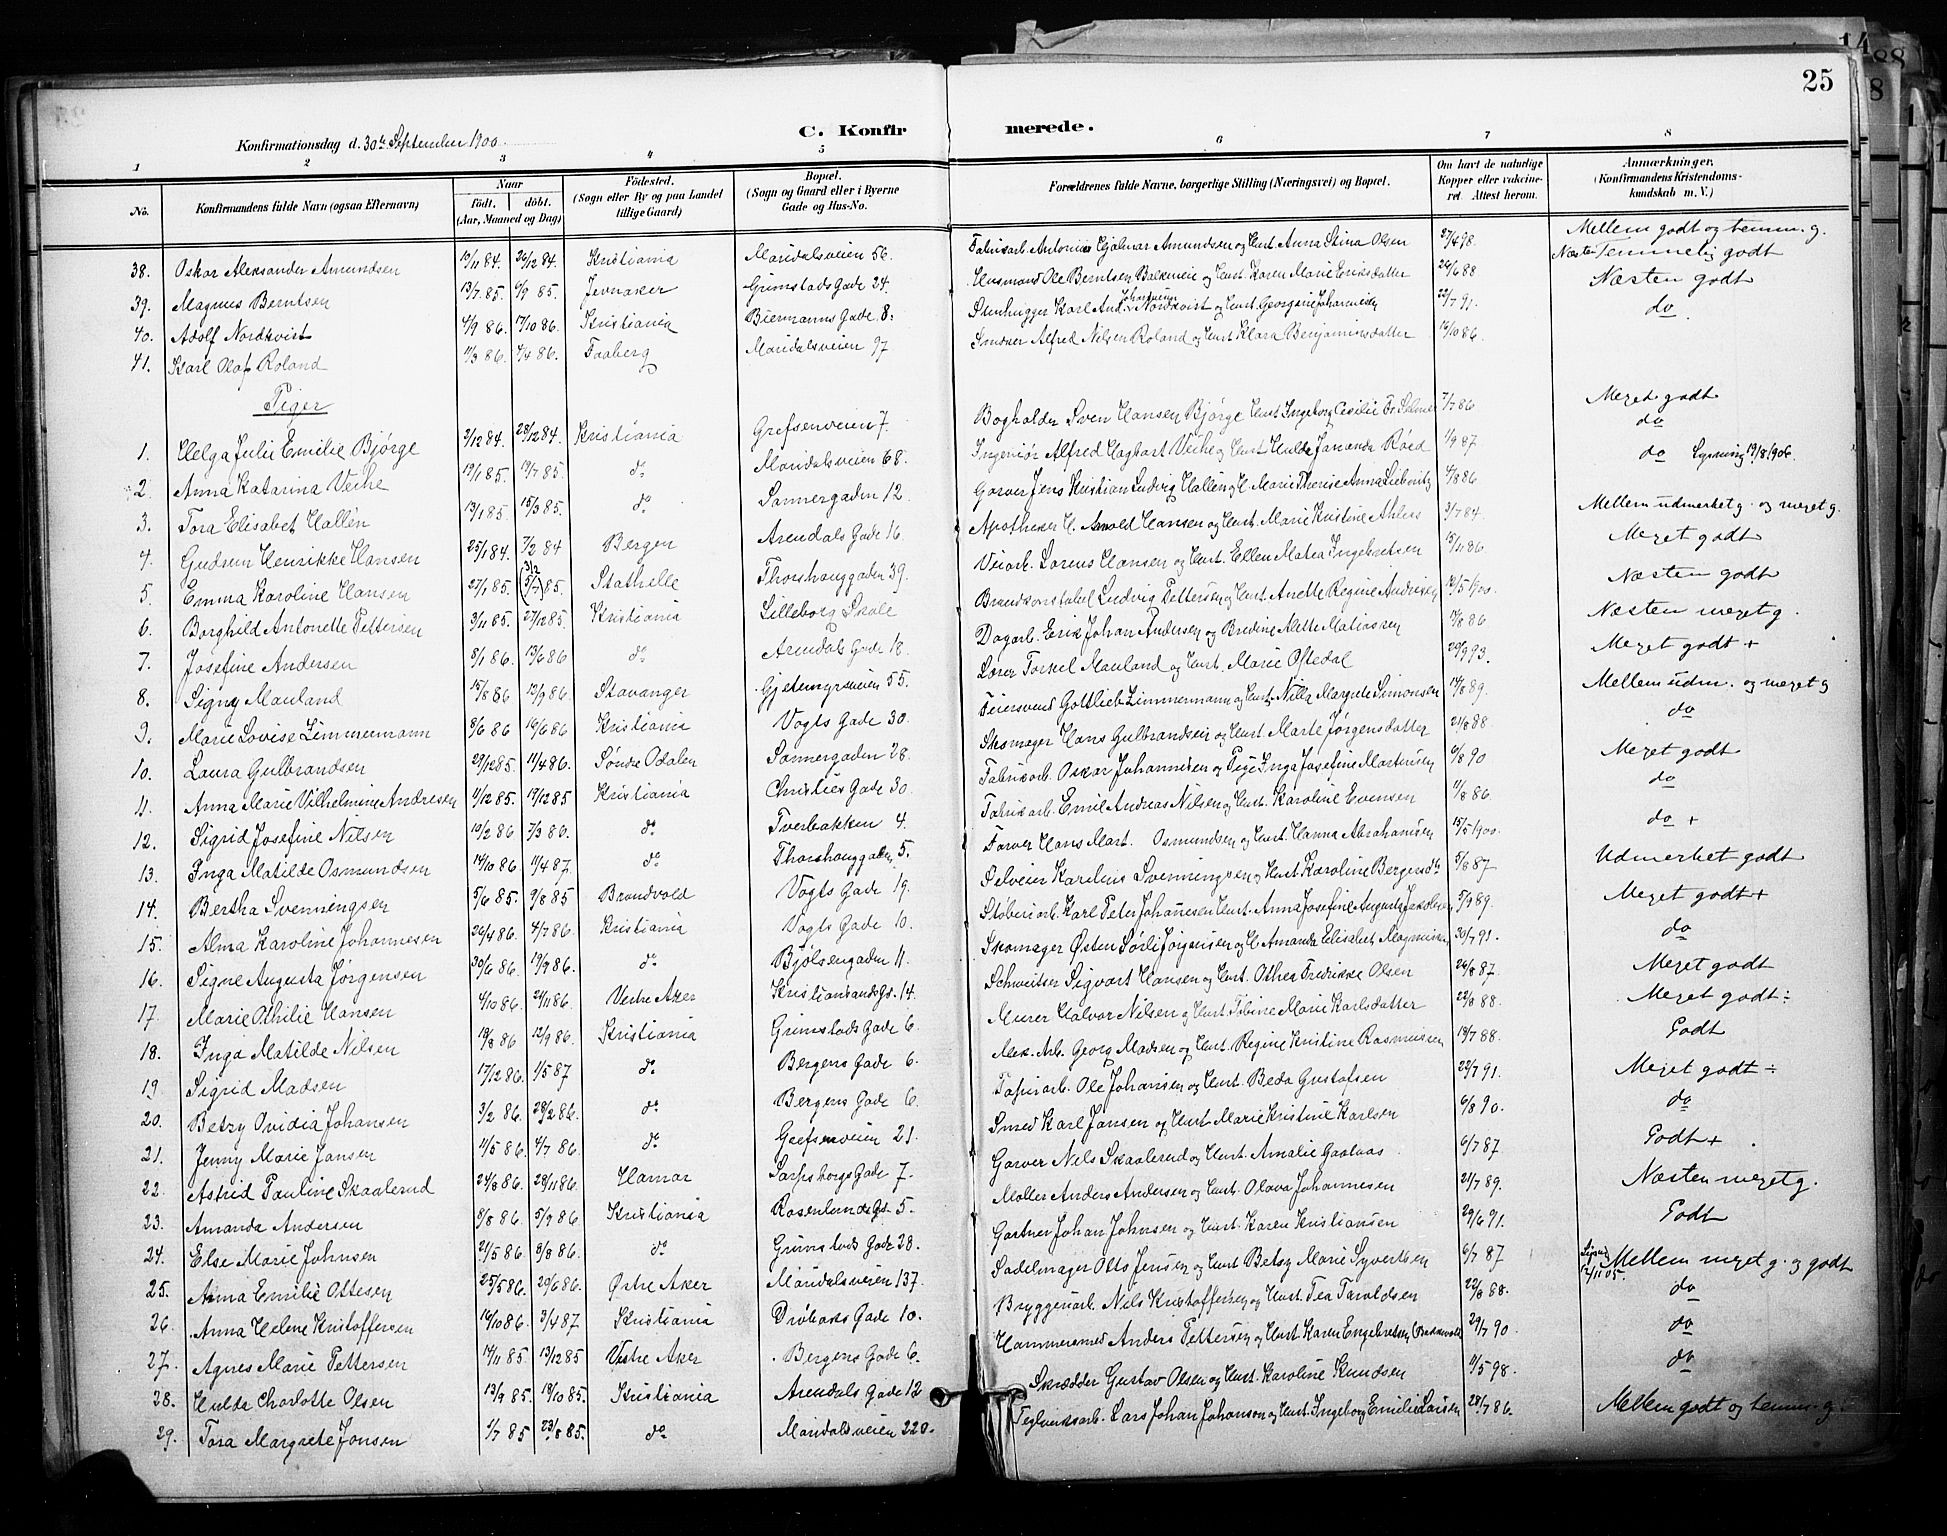 25
C. Konfirmerede.
Konfirmationsdag d. 30te September 1900.
1 2 3 4 5 6 7 8
No. Konfirmandens fulde Navn (ogsaa Efternavn) Naar født. døbt. (Aar, Maaned og Dag) Fødested. (Sogn eller By og paa Landet tillige Gaard) Bopæl. (Sogn og Gaard eller i Byerne Gade og Hus-No. Forældrenes fulde Navne, borgerlige Stilling (Næringsvei) og Bopæl. Om havt de naturlige Kopper eller vakcineret. Attest herom. Anmærkninger. (Konfirmandens Kristendomskundskab m. V.)
38. Oskar Aleksander Amundsen 10/11 84. 26/12 84. Kristiania Maridalsveien 56. Fabrikarb. Antonius Hjalmar Amundsen og Hust. Anna Stina Olsen 27/4 98. Mellem godt og temm. g.
39. Magnus Berntsen 13/7 85. 6/9 85. Jevnaker Grimstads Gade 24. Husmand Ole Berntsen Bakmeie og Hust. Karen Marie Eriksdatter 26/6 88 Næsten Temmelig godt
40. Adolf Nordkvist 4/9 86. 17/10 86. Kristiania Biermanns Gade 8. Stenhugger Karl And. Nordkvist og Hust. Georgine Johannesen 22/7 91. Næsten godt
41. Karl Olaf Roland 11/3 86. 4/4 86. Faaberg Maridalsveien 97 Smeker Alfred Nilsen Roland og Hust. Klara Benjaminsdatter 16/10 86. do.
Piger
1. Helga Julie Emilie Bjørge 2/12 84. 28/12 84. Kristiania Grefsenveien 7. Bogholder Sven Hansen Bjørge Hust. Ingeborg Cecilie Fr. Selmer 7/7 86 Meget godt
2. Anna Katarina Veihe 19/1 85. 19/7 85. do Maridalsveien 68. Ingeniør Alfred Hagbart Veihe og Hust. Hulda Jananda Röed 1/9 87 do
3. Tora Elisabet Hallén 13/1 85. 15/3 85. do Sannergaden 12. Garver Jens Kristian Ludvig Hallén og H. Marie Therese Anna Liebevitz 4/8 86 do Lysning 12/8 1906.
4. Gudrun Henrikke Hansen 25/1 84. 7/2 84 Bergen Arendals Gade 16. Apotheker H. Arnold Hansen og Hust. Marie Kristine Ahlers 3/7 84. Mellem udmerket g. og meget g.
5. Emma Karoline Hansen 27/1 85. (5/7) 85. Stathelle Thorshauggaden 39. Veiarb. Lorens Hansen og Hust. Ellen Matea Ingebretsen 15/11 86. Meget godt
6. Borghild Antonette Pettersen 3/11 85. 27/12 85. Kristiania Lilleborg Skole Brandkonstabel Ludvig Pettersen og Hust. Anette Regine Andersen 12/5 1900. Næsten godt
7. Josefine Andersen 8/1 86. 13/6 86 do Arendals Gade 18. Dagarb. Erik Johan Andersen og Bredine Alette Matiassen 17/8 86 Næsten meget g.
8. Signy Mauland 15/8 86 12/9 86. Stavanger Gjetemyrsveien 55. Lærer Torkel Mauland og Hust. Marie Oftedal 20/9 93. Meget godt +
9. Marie Lovise Zimmermann 8/6 86 16/6 86 Kristiania Vogts Gade 30. Feiersvend Gottlieb Zimmermann og Hust. Nilla Margrete Simonsen 14/8 89. Mellem udm. og meget g
10. Laura Gulbrandsen 29/12 85. 11/4 86. Søndre Odalen Sannergaden 28. Skomager Hans Gulbrandsen og Hust. Marte Jørgensdatter 21/8 88. do
11. Anna Marie Vilhelmine Andresen 11/12 85. 19/12 85 Kristiania Christies Gade 30. Fabrikarb. Oskar Johannesen og Pige Inga Josefine Martinsen 6/8 90 Meget godt
12. Sigrid Josefine Nilsen 10/2 86 7/3 86. do Tverbakken 4. Fabrikarb. Emil Andreas Nilsen og Hust. Karoline Evensen 11/8 86. do
13. Inga Matilde Osmundsen 14/10 86 11/4 87. do Thorshauggaden 5. Farver Hans Mart. Osmundsen og Hust. Hanna Abrahamsen 15/5 1900. do +
14. Bertha Svenningsen 5/6 85. 9/8 85 Brandvold Vogts Gade 19. Selveier Karelius Svenningsen og Hust. Karoline Bergersdtr 5/8 87 Udmerket godt
15. Alma Karoline Johannesen 26/4 86. 4/7 86. Kristiania Vogts Gade 10. Støberiarb. Karl Peter Johannesen Hust. Anna Josefine Augusta Jakobsen 5/9 89. Meget godt +
16. Signe Augusta Jørgensen 30/6 86. 19/9 86. do Bjølsengaden 11. Skomager Østen Sørli Jørgensen og H. Amanda Elisabet Magnussen 30/7 91. do
17. Marie Othilie Hansen 4/10 86. 21/11 86. Vestre Aker Kristiansandsgt. 14. Schweitser Sigvart Hansen og Hust. Othea Fredrikke Olsen 24/8 87. Meget godt
18. Inga Matilde Nilsen 19/8 86 12/9 86. Kristiania Grimstads Gade 6. Murer Halvor Nilsen og Hust. Tobine Marie Karlsdatter 22/8 88. Meget godt ÷
19 Sigrid Madsen 17/12 86. 1/5 87 do Bergens Gade 6. Mek. Arb. Georg Madsen og Hust. Regine Kristine Rasmussen 13/7 88. Godt
20. Betzy Ovidia Johansen 3/2 86. 28/2 86. do Bergens Gade 6. Papirarb. Ole Johansen og Hust. Beda Gustafsen 22/7 91. Meget godt ÷
21. Jenny Marie Jansen 11/5 86 4/7 86. do Grefsenveien 21. Smed Karl Jansen og Hust. Marie Kristine Karlsen 6/8 90. do
22. Astrid Pauline Skaalerud 24/8 86. 28/11 86. Hamar Sarpsborgs Gade 7. Garver Nils Skaalerud og Hust. Amalie Gaalaas 6/7 87. Godt +
23. Amanda Andersen 8/8 86. 5/9 86 Kristiania Rosenlundsgt. 5. Møller Anders Andersen og Hust. Olava Johannesen 21/7 89. Næsten meget g.
24. Else Marie Johnsen 21/5 86. 8/8 86. do Grimstads Gade 28. Gartner Johan Johnsen og Hust. Karen Kristiansen 29/6 91. Godt
25. Anna Emilie Ottesen 25/5 86. 20/6 86. Østre Aker Maridalsveien 137. Sadelmager Otto Jensen og Hust. Betsy Marie Syvertsen 6/7 87 Lysn. 12/11 05. Mellem meget g. og godt
26. Anna Helene Kristoffersen 16/10 86. 3/4 87 Kristiania Drøbaks Gade 10. Bryggeriarb. Nils Kristoffersen og Hust. Tea Taraldsen 22/8 88. do
27. Agnes Marie Pettersen 14/11 85. 13/12 85 Vestre Aker Bergens Gade 6. Hammersmed Anders Pettersen og Hust. Karen Engebretsen 29/7 90. do
28. Hulda Charlotte Olsen 13/9 85. 18/10 85. Kristiania Arendals Gade 12 Skrædder Gustav Olsen og Hust. Karoline Knudsen 11/5 98. do
29. Tora Margrete Jonsen 1/7 85 23/8 85. do Maridalsveien 220. Teglverksarb. Lars Johan Johanson og Hust. Ingeborg Emilie Larsen 28/7 86. Mellem godt og temm. g.